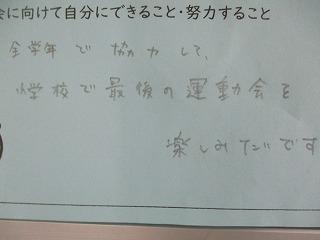 会に向けて自分にできること・努力すること
全学年で協力して、
小学校で最後の運動会を
楽しみたいです